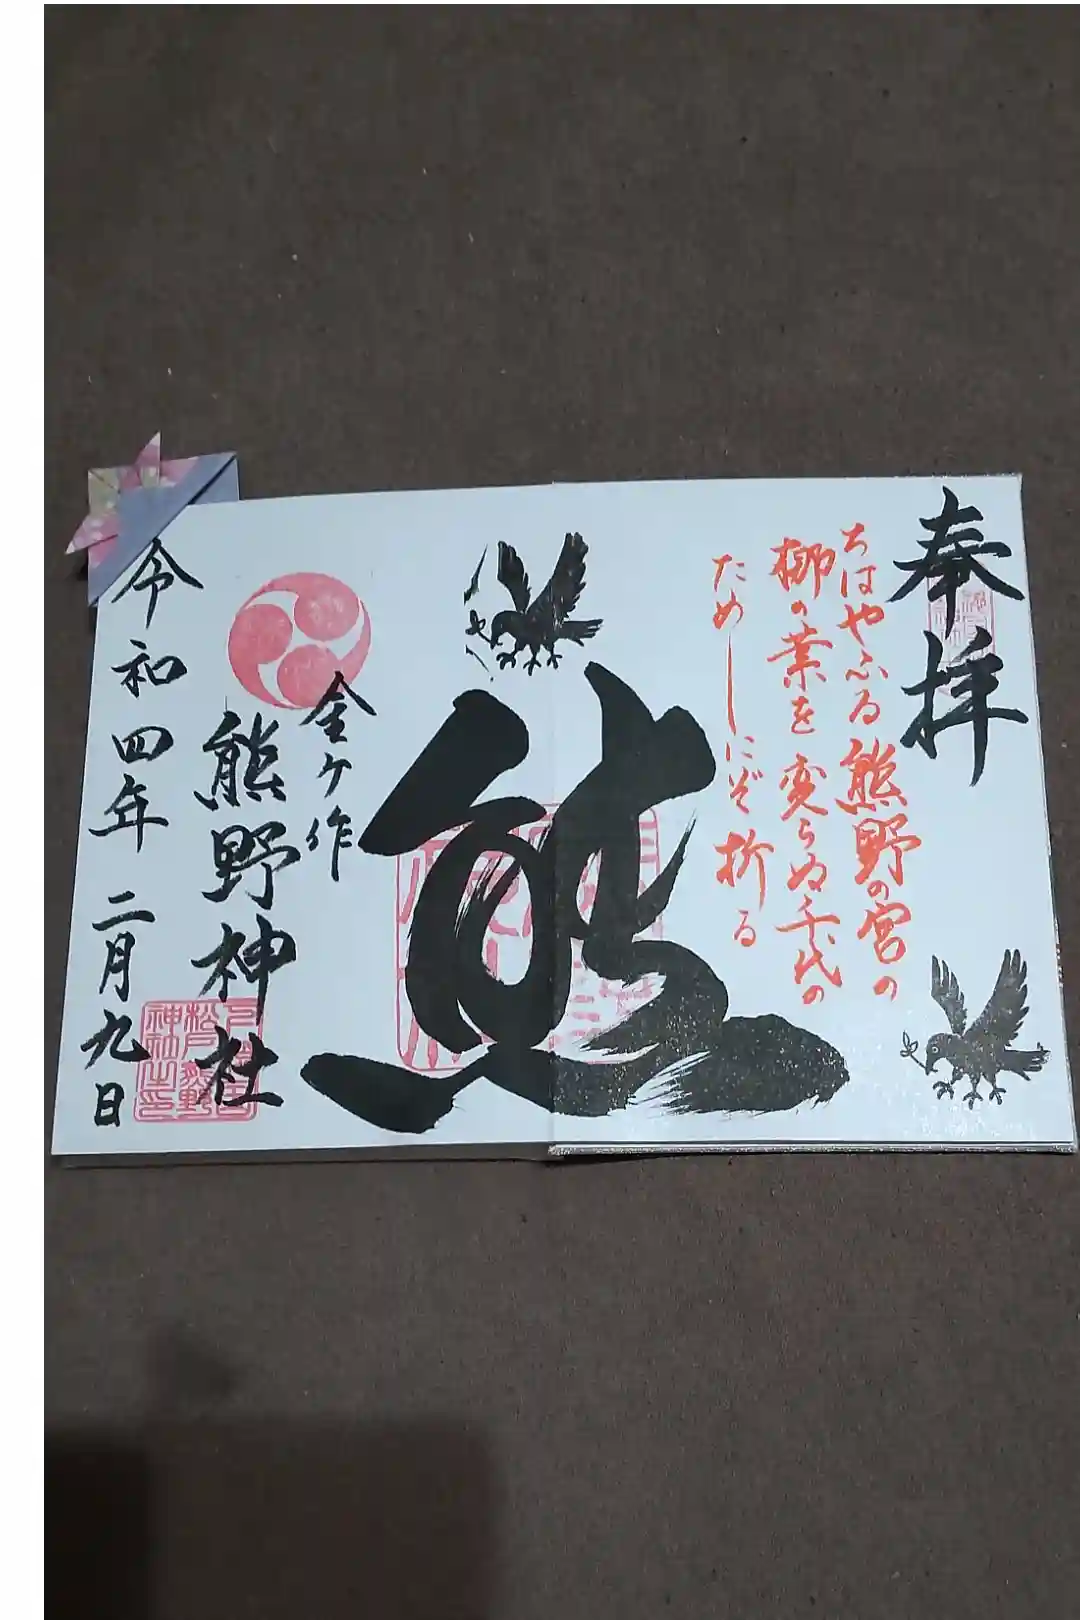 奉拝
ちはやふる熊野の宮の
梛の葉を変らぬ千代の
ためしにぞ折る
熊
金ケ作
熊野神社
令和四年二月九日